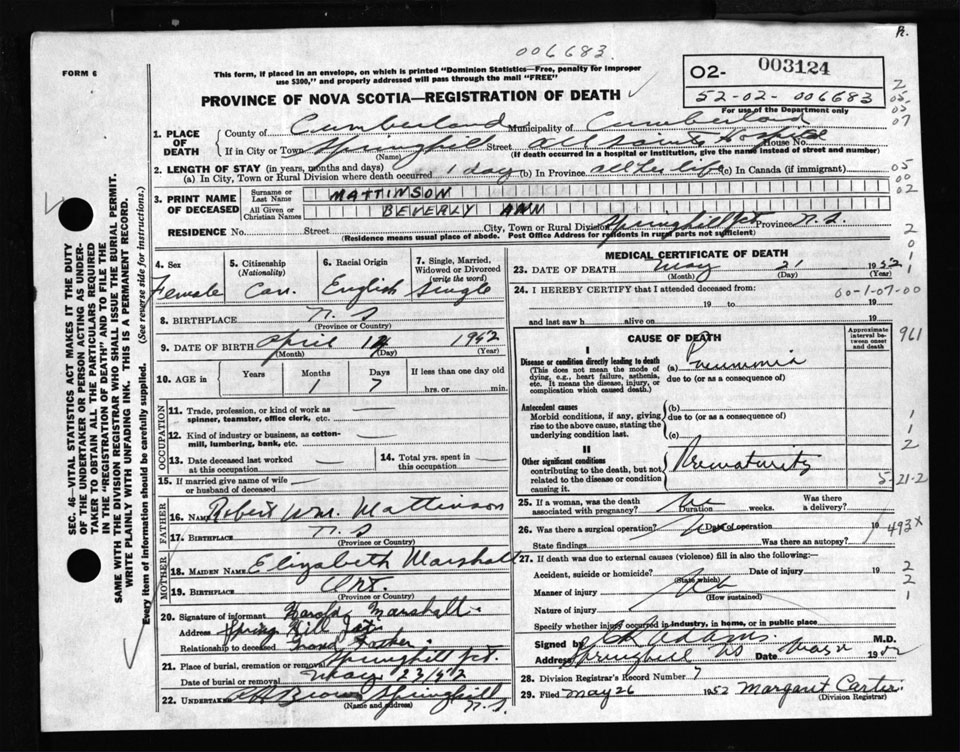 R.
006683
FORM 6
This form, if placed in an envelope, on which is printed "Dominion Statistics—Free, penalty for improper
use $300," and properly addressed will pass through the mail "FREE"
02- 003124
52-02-006683
For use of the Department only
PROVINCE OF NOVA SCOTIA—REGISTRATION OF DEATH
1. PLACE OF DEATH
County of Cumberland Municipality of Cumberland
If in City or Town Springhill Street All Saints Hospital House No.
(Name) (If death occurred in a hospital or institution, give the name instead of street and number)
2. LENGTH OF STAY (in years, months and days)
(a) In City, Town or Rural Division where death occurred 1 day (b) In Province all her life (c) In Canada (if immigrant)
3. PRINT NAME OF DECEASED
Surname or Last Name MATTINSON
All Given or Christian Names BEVERLY ANN
RESIDENCE No. Street City, Town or Rural Division Springhill Jct. Province N.S.
(Residence means usual place of abode. Post Office Address for residents in rural parts not sufficient)
2
05-
05-
07
05
00
02
2
0
1
1
SEC. 46—VITAL STATISTICS ACT MAKES IT THE DUTY
OF THE UNDERTAKER OR PERSON ACTING AS UNDER-
TAKER TO OBTAIN ALL THE PARTICULARS REQUIRED
IN THE "REGISTRATION OF DEATH" AND TO FILE THE
SAME WITH THE DIVISION REGISTRAR WHO SHALL ISSUE THE BURIAL PERMIT.
WRITE PLAINLY WITH UNFADING INK. THIS IS A PERMANENT RECORD.
Every item of information should be carefully supplied. (See reverse side for instructions.)
4. Sex
Female
5. Citizenship
(Nationality)
Can.
6. Racial Origin
English
7. Single, Married,
Widowed or Divorced
(write the word)
Single
8. BIRTHPLACE N.S
(Province or Country)
9. DATE OF BIRTH April 14 1952
(Month) (Day) (Year)
10. AGE in Years Months Days If less than one day old
1 7 hrs. or min.
OCCUPATION
11. Trade, profession, or kind of work as
spinner, teamster, office clerk, etc. —
12. Kind of industry or business, as cotton-
mill, lumbering, bank, etc. —
13. Date deceased last worked
at this occupation —
14. Total yrs. spent in
this occupation —
15. If married give name of wife
or husband of deceased —
FATHER
16. NAME Robert Wm. Mattinson
17. BIRTHPLACE N.S
(Province or Country)
MOTHER
18. MAIDEN NAME Elizabeth Marshall
19. BIRTHPLACE Ont.
(Province or Country)
20. Signature of informant Harold Marshall
Address Spring Hill Jct.
Relationship to deceased Grand Father
21. Place of burial, cremation or removal Springhill Jct.
Date of burial or removal May 23/52
22. UNDERTAKER Brown Springhill
(Name and address) N.S.
MEDICAL CERTIFICATE OF DEATH
23. DATE OF DEATH May 21 1952
(Month) (Day) (Year)
24. I HEREBY CERTIFY that I attended deceased from:
00-1-07-00
19 to 19
and last saw h alive on 19
CAUSE OF DEATH
Approximate
interval be-
tween onset
and death
961
I
Disease or condition directly leading to death
(This does not mean the mode of
dying, e.g., heart failure, asthenia,
etc. It means the disease, injury, or
complication which caused death.)
(a) Pneumonia
due to (or as a consequence of)
Antecedent causes
Morbid conditions, if any, giving
rise to the above cause, stating the
underlying condition last.
(b)
due to (or as a consequence of)
(c)
1
1
2
II
Other significant conditions
contributing to the death, but not
related to the disease or condition
causing it.
Prematurity
5-21-2
25. If a woman, was the death
associated with pregnancy? No Duration weeks. Was there
a delivery?
26. Was there a surgical operation? No Date of operation 19
493x
State findings Was there an autopsy?
27. If death was due to external causes (violence) fill in also the following:—
Accident, suicide or homicide? Date of injury 19
(State which)
Manner of injury No
(How sustained)
Nature of injury
Specify whether injury occurred in industry, in home, or in public place
2
2
1
Signed by Adams M.D.
Address Springhill NS Date 19
28. Division Registrar's Record Number 7
29. Filed May 26 1952 Margaret Carter
(Division Registrar)